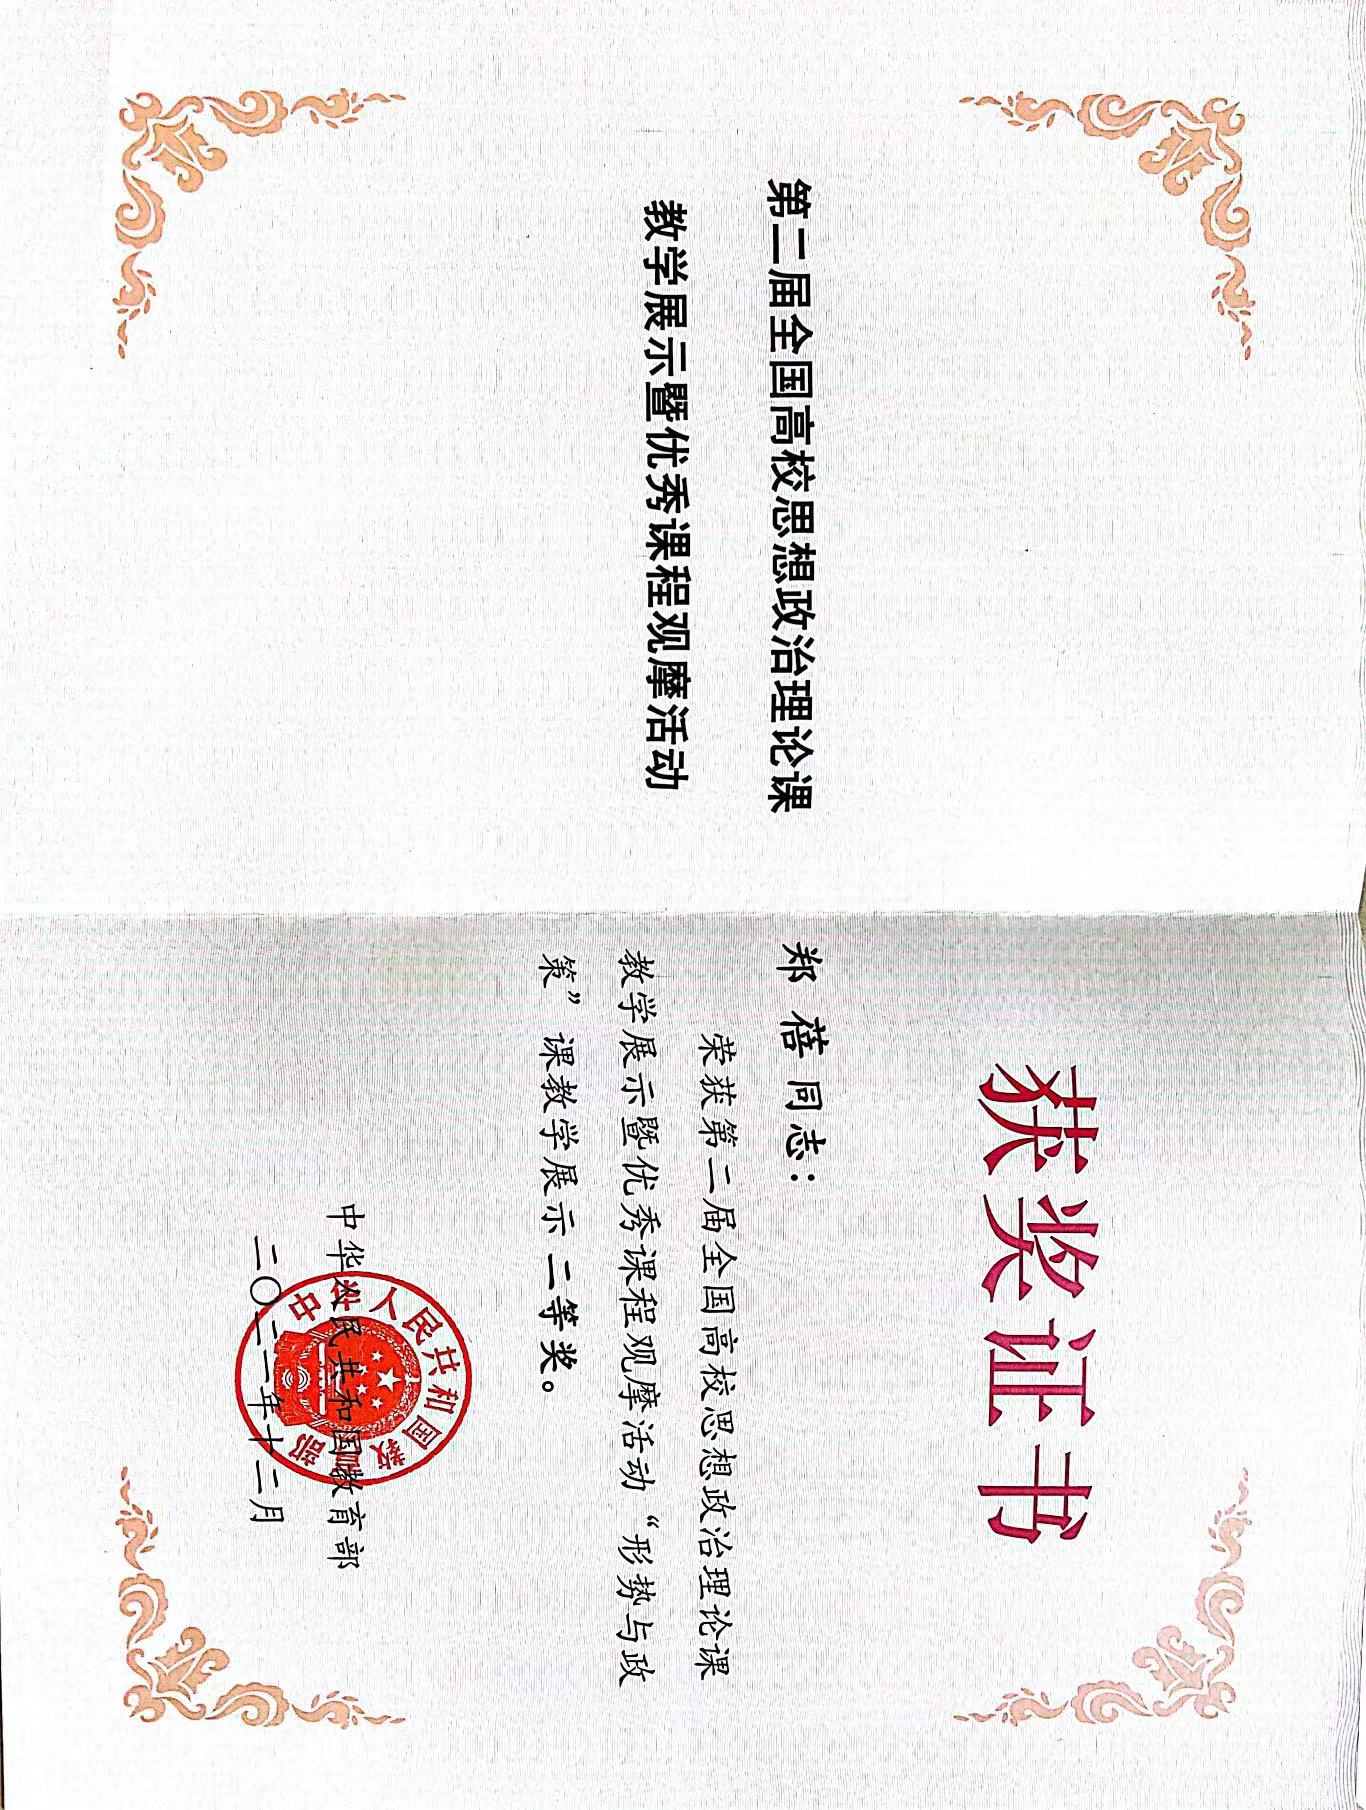 第二届全国高校思想政治理论课
教学展示暨优秀课程观摩活动
获奖证书
郑蓓同志：
荣获第二届全国高校思想政治理论课
教学展示暨优秀课程观摩活动“形势与政
策”课教学展示二等奖。
中华人民共和国教育部
二〇二一年十二月
中华人民共和国教育部